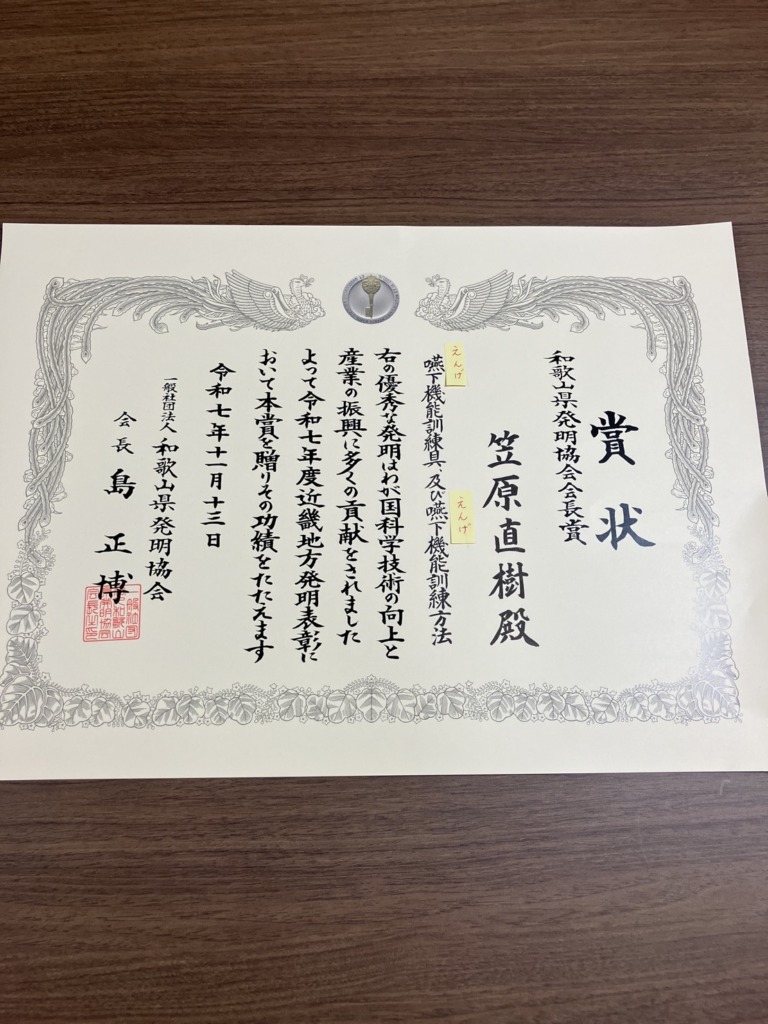 賞状
和歌山県発明協会会長賞
笠原直樹殿
えんげ
えんげ
嚥下機能訓練具、及び嚥下機能訓練方法
右の優秀な発明はわが国科学技術の向上と
産業の振興に多くの貢献をされました
よって令和七年度近畿地方発明表彰に
おいて本賞を贈りその功績をたたえます
令和七年十一月十三日
一般社団法人 和歌山県発明協会
会長 島正博